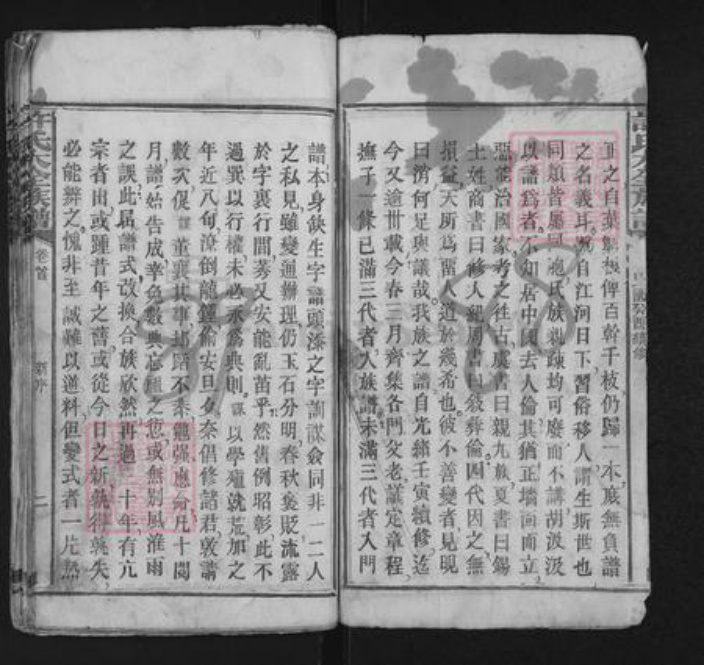 正之自葉與根俾百幹千枝仍歸一本庶無負譜
之名義耳慨自江河日下習俗移人謂生斯世也
同類皆屬同胞氏族親疎均可廢而不講胡汲汲
以譜為者不知居中國去人倫其猶正墻面而立
惡能治國家考之往古虞書曰親九族夏書曰錫
土姓商書曰修人紀周書曰敍彞倫四代因之無
損益天所為留一道於幾希也彼不善變者見晛
曰消何足與議哉我族之譜自光緒壬寅續修迄
今又逾卅載今春三月齊集各門父老議定章程
撫子一條已滿三代者入族譜未滿三代者入門
許氏大合族譜
卷首
新序
二
譜本身飲生字譜頭添之字謝謀僉同非一二人
之私見雖變通辦理仍玉石分明春秋褒貶流露
於字裏行間莠又安能亂苗乎然舊例昭彰此不
過異以行權未必永為典則謀以學殖就荒加之
年近八旬潦倒龍鍾偷安旦夕奈倡修諸君敦請
數次促謀董襄其事
不
勉強應命凡十閱
月譜始告成幸免數典忘祖之愆或無別風淮雨
之誤此屆譜式改換合族欣然再過三十年有亢
宗者出或踵昔年之舊或從今日之新孰得孰失
必能辨之愧非至誠難以道料但變式者一片熱